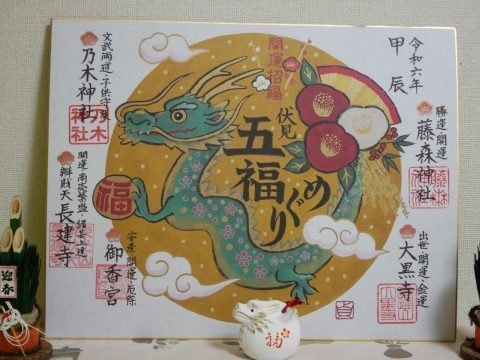 令和六年
甲辰
開運招福
伏見
五福めぐり
勝運・開運
藤森神社
出世・開運・金運
大黒寺
文武両道・子供守護
乃木神社
乃木神社
開運・商売繁盛
辨財天 長建寺
安産・開運・厄除
御香宮
福
貞
迎春
福